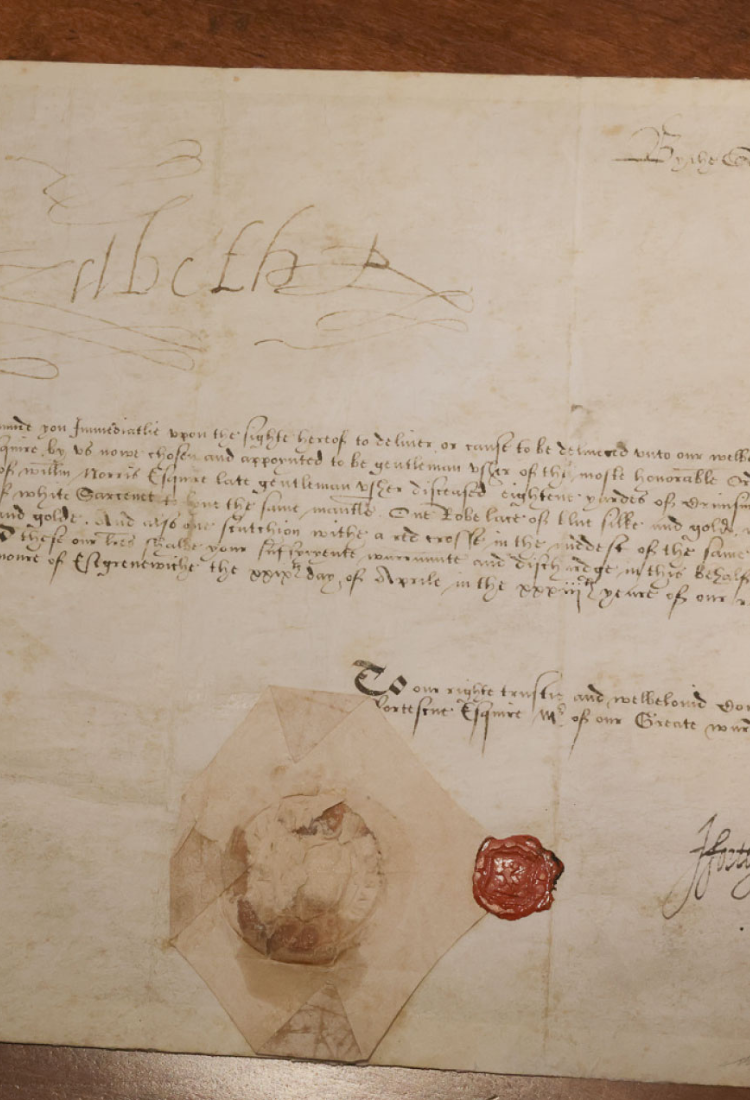 By the
zabeth R
you Immediatlie upon the sighte hereof to deliver or cause to be delivered unto our welbe
squire by us nowe chosen and appoynted to be gentleman ussher of the moste honorable
of willm Norris Esquire late gentleman ussher disceased eightene yardes of Crimsin
of white Sarcenet to lyne the same mantle. One Robe lace of blue silke and golde
and golde. And also one scutchion withe a red crosse in the middest of the same
these our lres shalbe your sufficyente warrante and dischardge in this behalf
honore of Estgrenewiche the xxixth day of Aprile in the xxxiiijth yeare of our
To our right trustie and welbelovid
Fortescue Esquire Mr of our Greate ward